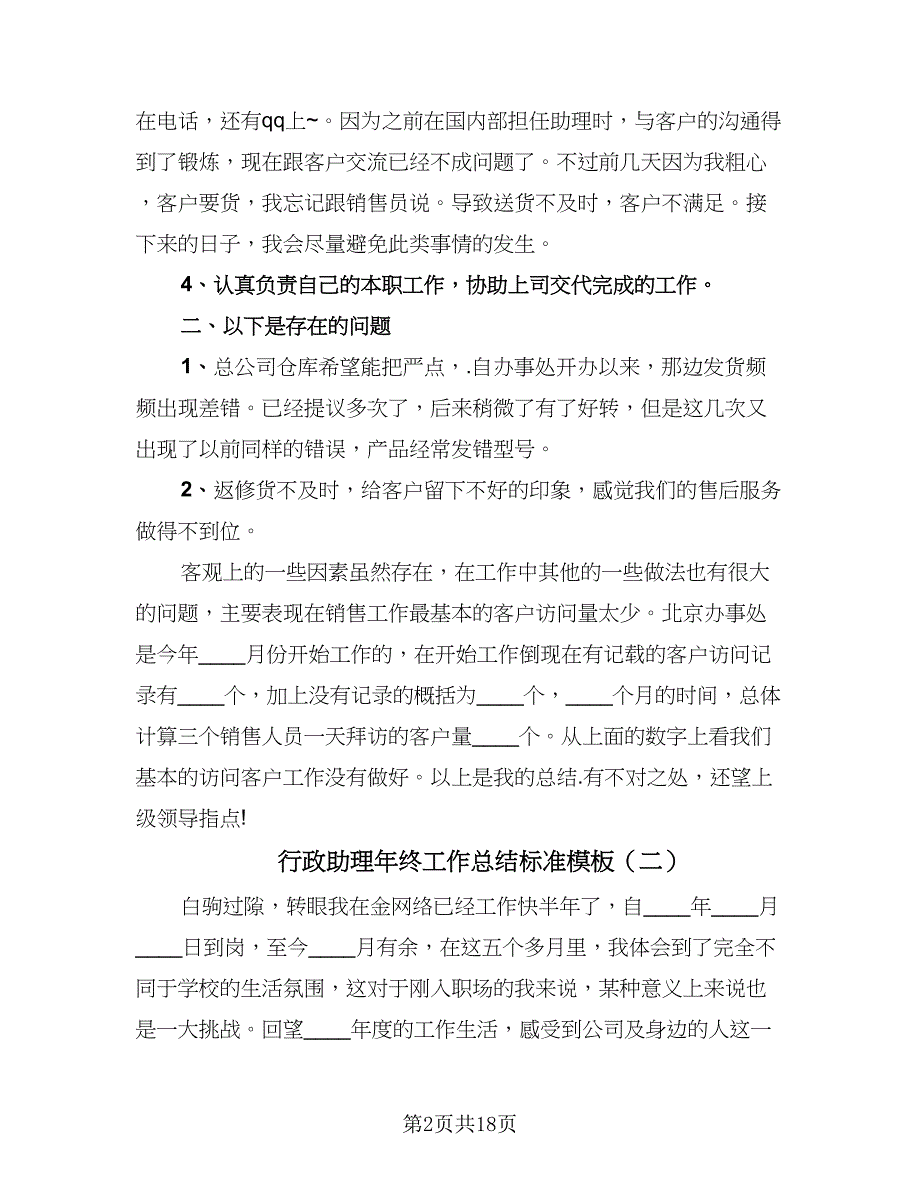 在电话，还有qq上~。因为之前在国内部担任助理时，与客户的沟通得
到了锻炼，现在跟客户交流已经不成问题了。不过前几天因为我粗心
，客户要货，我忘记跟销售员说。导致送货不及时，客户不满足。接
下来的日子，我会尽量避免此类事情的发生。
4、认真负责自己的本职工作，协助上司交代完成的工作。
二、以下是存在的问题
1、总公司仓库希望能把严点，.自办事处开办以来，那边发货频
频出现差错。已经提议多次了，后来稍微了有了好转，但是这几次又
出现了以前同样的错误，产品经常发错型号。
2、返修货不及时，给客户留下不好的印象，感觉我们的售后服务
做得不到位。
客观上的一些因素虽然存在，在工作中其他的一些做法也有很大
的问题，主要表现在销售工作最基本的客户访问量太少。北京办事处
是今年____月份开始工作的，在开始工作倒现在有记载的客户访问记
录有____个，加上没有记录的概括为____个，____个月的时间，总体
计算三个销售人员一天拜访的客户量____个。从上面的数字上看我们
基本的访问客户工作没有做好。以上是我的总结.有不对之处，还望上
级领导指点!
行政助理年终工作总结标准模板（二）
白驹过隙，转眼我在金网络已经工作快半年了，自____年____月
____日到岗，至今____月有余，在这五个多月里，我体会到了完全不
同于学校的生活氛围，这对于刚入职场的我来说，某种意义上来说也
是一大挑战。回望____年度的工作生活，感受到公司及身边的人这一
第2页共18页